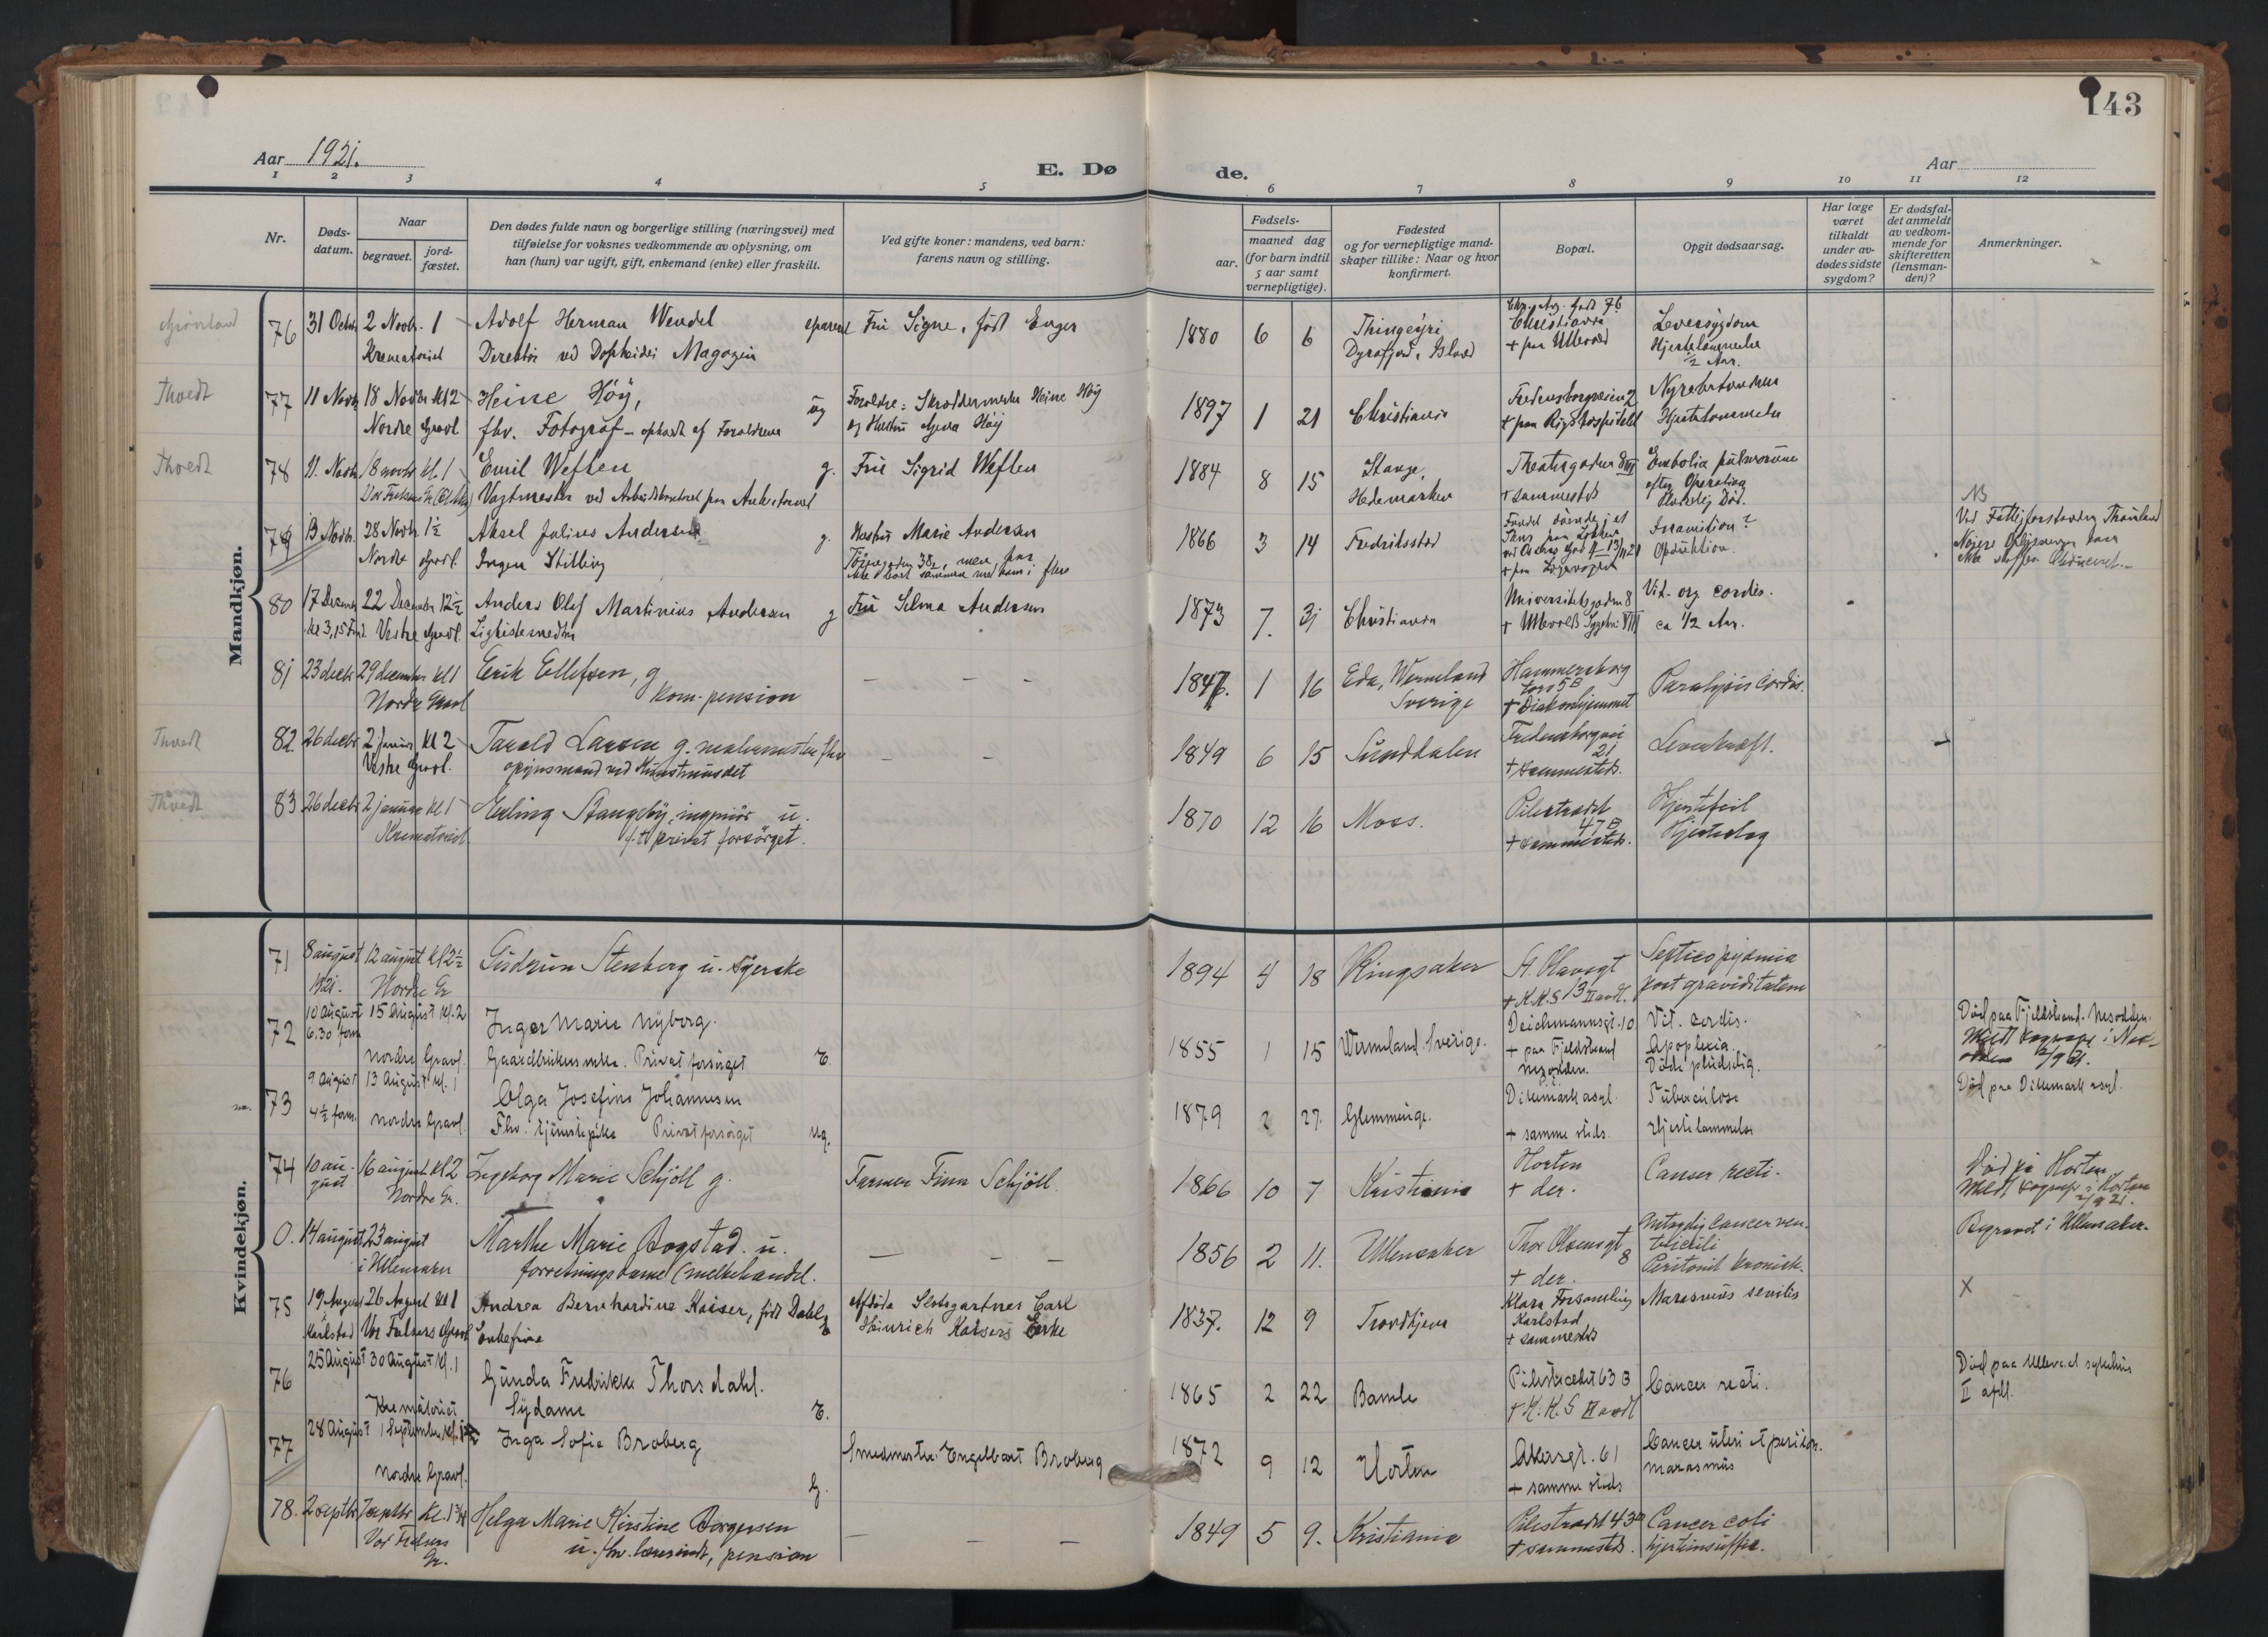 143
Aar 1921.
E. Døde.
Aar
1 2 3 4 5 6 7 8 9 10 11 12
Nr.
Døds-datum.
Naar
begravet.
jord-fæstet.
Den dødes fulde navn og borgerlige stilling (næringsvei) med
tilføielse for voksnes vedkommende av oplysning, om
han (hun) var ugift, gift, enkemand (enke) eller fraskilt.
Ved gifte koner: mandens, ved barn:
farens navn og stilling.
Fødsels-
aar.
maaned dag
(for barn indtil
5 aar samt
vernepligtige).
Fødested
og for vernepligtige mand-
skaper tillike: Naar og hvor
konfirmert.
Bopæl.
Opgit dødsaarsag.
Har læge
været
tilkaldt
under av-
dødes sidste
sygdom?
Er dødsfal-
det anmeldt
av vedkom-
mende for
skifteretten
(lensman-
den)?
Anmerkninger.
Mandkjøn.
Grønland 76 31 Octbr 2 Novbr. 1 Adolf Herman Wendel separert Fru Signe, født Enger 1880 6 6 Thingeyri Christiania Leversygdom
Krematoriet Direktør ved Magazin Dyrafjord, Island + paa Ullevaal Hjertelammelse
1/2 Aar.
Thvedt 77 11 Novbr 18 Novbr Kl 2 Heine Høy, ug Forældre: Skræddermester Heine Høy 1897 1 21 Christiania Nyrebetændelse
Nordre Gravl fhv. Fotograf - ophold af Forældrene og Hustru Høy + paa Rigshospitalet Hjertelammelse
Thvedt 78 11. Novbr 18 novbr kl. 1 Emil Weflen g. Fru Sigrid Weflen 1884 8 15 Stange, Theatergaden 8 III Embolia pulmonum
Vor Frelsers Gr. Vagtmester ved Arbeidskontoret paa Ankertorvet Hedemarken + sammesteds efter Operation
Død.
79 13 Novbr. 28 Novbr. 1 1/2 Aksel Julius Andersen g. Hustru Marie Andersen 1866 3 14 Fredriksstad Inanition?
Nordre Gravl. Ingen Stilling Obduktion.
NB
Ved Fattigforstander
Nøiere Oplysninger kan
ikke skaffes
80 17 December 22 December 12 1/2 Anders Olaf Martinius Andersen g Fru Selma Andersen 1873 7. 31 Christiania Universitetsgaden 8 Vit. org cordis.
Kl 3,15 Fm. Vestre Gravl. + Ullevolds Sygehus VIII ca 1/2 Aar.
81 23 decbr 29 december Kl 1 Erik Ellefsen, g — — — 1847. 1 16 Eda, Wermeland Hammersborg Paralysis cordis.
Nordre Gravl Kom. pension Sverige torv 5 B
+ Diakonhjemmet
Thvedt 82. 26 decbr 2 januar Kl 2 Tarald Larsen g. malermester fhv — — 1849 6 15 Sunddalen Fredensborgvei Levekræft.
Vestre Gravl. opsynsmand ved Kunstmuseet 21
+ sammesteds.
Thvedt 83 26 decbr 2 januar Kl 1 Erling Stangeby, ingeniør u. 1870 12 16 Moss. Pilestrædet Hjertefeil
Krematoriet f.t. privat forsörget. 47 B Hjerteslag
+ sammesteds.
Kvindekjøn.
71 8 august 12 august Kl 2 1/2 Gudrun Stenberg u. syerske 1894 4 18 Ringsaker St. Olavsgt Septicopyämia
1921. Nordre Gr + K.K.S. II avd. post graviditatem
72 10 August 15 August Kl. 2 Inger Marie Nyborg. 1855 1 15 Wermeland. Sverige. Deichmannsgt. 10 Vit. cordis. Död paa Fjeldstrand. Nesodden.
6.30 form Nordre Gravl. Gaardbrukerenke. Privat forsörget E. + paa Fjeldstrand Apoplexia.
Nesodden. Döde pludselig.
73 9 August 13 August Kl. 1 Olga Josefine Johannesen 1879 2 27. Glemminge. Dikemark asyl. Tuberculose Död paa Dikemark asyl.
4 1/2 form. Nordre Gravl. Fhv. tjenestepike Privat forsörget ug. + samme steds. Hjertelammelse
74 10 au- 16 august Kl 2 Ingeborg Marie Schjöll g. Farmer Finn Schjöll 1866 10 7 Kristiania Horten Cancer recti. Död på Horten
gust Nordre Gr. + der.
0. 14 august 23 august Marthe Marie Bogstad. u. — — — 1856 2 11. Ullensaker Thor Olsensgt Cancer ven- Begravet i Ullensaker.
i Ullensaker forretningsdame (melkehandel. 8 triculi
+ der. Peritonit kronisk.
75 19 August 26 August Kl 1 Andrea Bernhardine Kaiser, født Dahl Afdøde Slotsgartner Carl 1837. 12 9 Trondhjem Klara Forsamling Marasmus senilis X
Karlstad Vor Frelsers Gravl Enkefrue Heinrich Kaisers Enke Karlstad
+ sammesteds
76 25 August 30 August Kl. 1 Gunda Fredrikke Thorsdahl. 1865 2 22 Bamle Pilestrædet 63 B Cancer recti. Död paa Ullevaal sykehus
Krematoriet Sydame E. + K.K.S II avd II afdl.
77 28 August 1 September Kl. Inga Sofie Broberg Smedmester Engelbart Broberg 1872 9 12 Horten Akersgt. 61 Cancer uteri et periton.
Nordre Gravl. G. + samme steds marasmus
78. 2 septbr 7 septbr Kl. 1 3/4 Helga Marie Kirstine Borgersen — — — 1849 5 9. Kristiania Pilestrædet 43 Cancer coli
Vor Frelsers u. fhv. lærerinde, pension + sammesteds. hjerteinsuffic.
Gr.